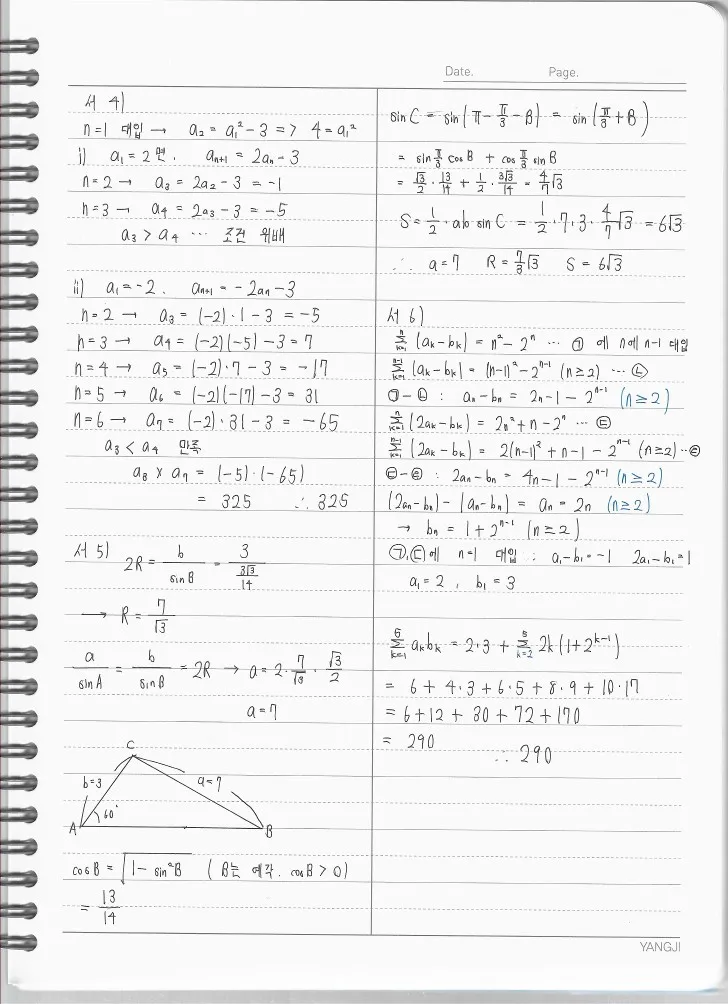 Date. Page.
서 4)
n=1 대입 → a₂ = a₁² - 3 => 4 = a₁²
i) a₁ = 2 면. aₙ₊₁ = 2aₙ - 3
n=2 → a₃ = 2a₂ - 3 = -1
n=3 → a₄ = 2a₃ - 3 = -5
a₃ > a₄ … 조건 위배
ii) a₁ = -2. aₙ₊₁ = -2aₙ - 3
n=2 → a₃ = (-2)·1 - 3 = -5
n=3 → a₄ = (-2)(-5) - 3 = 7
n=4 → a₅ = (-2)·7 - 3 = -17
n=5 → a₆ = (-2)(-17) - 3 = 31
n=6 → a₇ = (-2)·31 - 3 = -65
a₃ < a₄ 만족
a₃ × a₇ = (-5)·(-65)
= 325 ∴ 325
서 5) 2R = b/sin B = 3/(3√3/14)
→ R = 7/√3
a/sin A = b/sin B = 2R → a = 2·7/√3·√3/2
a = 7
C
b=3 a=7
60°
A B
cos B = √(1 - sin²B) (B는 예각. cosB > 0)
= 13/14
sin C = sin(π - π/3 - B) = sin(π/3 + B)
= sin π/3 cos B + cos π/3 sin B
= √3/2 · 13/14 + 1/2 · 3√3/14 = 4/7√3
S = 1/2 · ab sin C = 1/2 · 7 · 3 · 4/7√3 = 6√3
∴ a = 7 R = 7/3√3 S = 6√3
서 6)
∑ₖ₌₁ⁿ (aₖ - bₖ) = n² - 2ⁿ … ㉠ 에 n에 n-1 대입
∑ₖ₌₁ⁿ⁻¹ (aₖ - bₖ) = (n-1)² - 2ⁿ⁻¹ (n≥2) … ㉡
㉠ - ㉡ : aₙ - bₙ = 2n - 1 - 2ⁿ⁻¹ (n≥2)
∑ₖ₌₁ⁿ (2aₖ - bₖ) = 2n² + n - 2ⁿ … ㉢
∑ₖ₌₁ⁿ⁻¹ (2aₖ - bₖ) = 2(n-1)² + n - 1 - 2ⁿ⁻¹ (n≥2) … ㉣
㉢ - ㉣ : 2aₙ - bₙ = 4n - 1 - 2ⁿ⁻¹ (n≥2)
(2aₙ - bₙ) - (aₙ - bₙ) = aₙ = 2n (n≥2)
→ bₙ = 1 + 2ⁿ⁻¹ (n≥2)
㉠, ㉢에 n=1 대입 : a₁ - b₁ = -1 2a₁ - b₁ = 1
a₁ = 2, b₁ = 3
∑ₖ₌₁⁵ aₖbₖ = 2·3 + ∑ₖ₌₂⁵ 2k(1 + 2ᵏ⁻¹)
= 6 + 4·3 + 6·5 + 8·9 + 10·17
= 6 + 12 + 30 + 72 + 170
= 290 ∴ 290
YANGJI